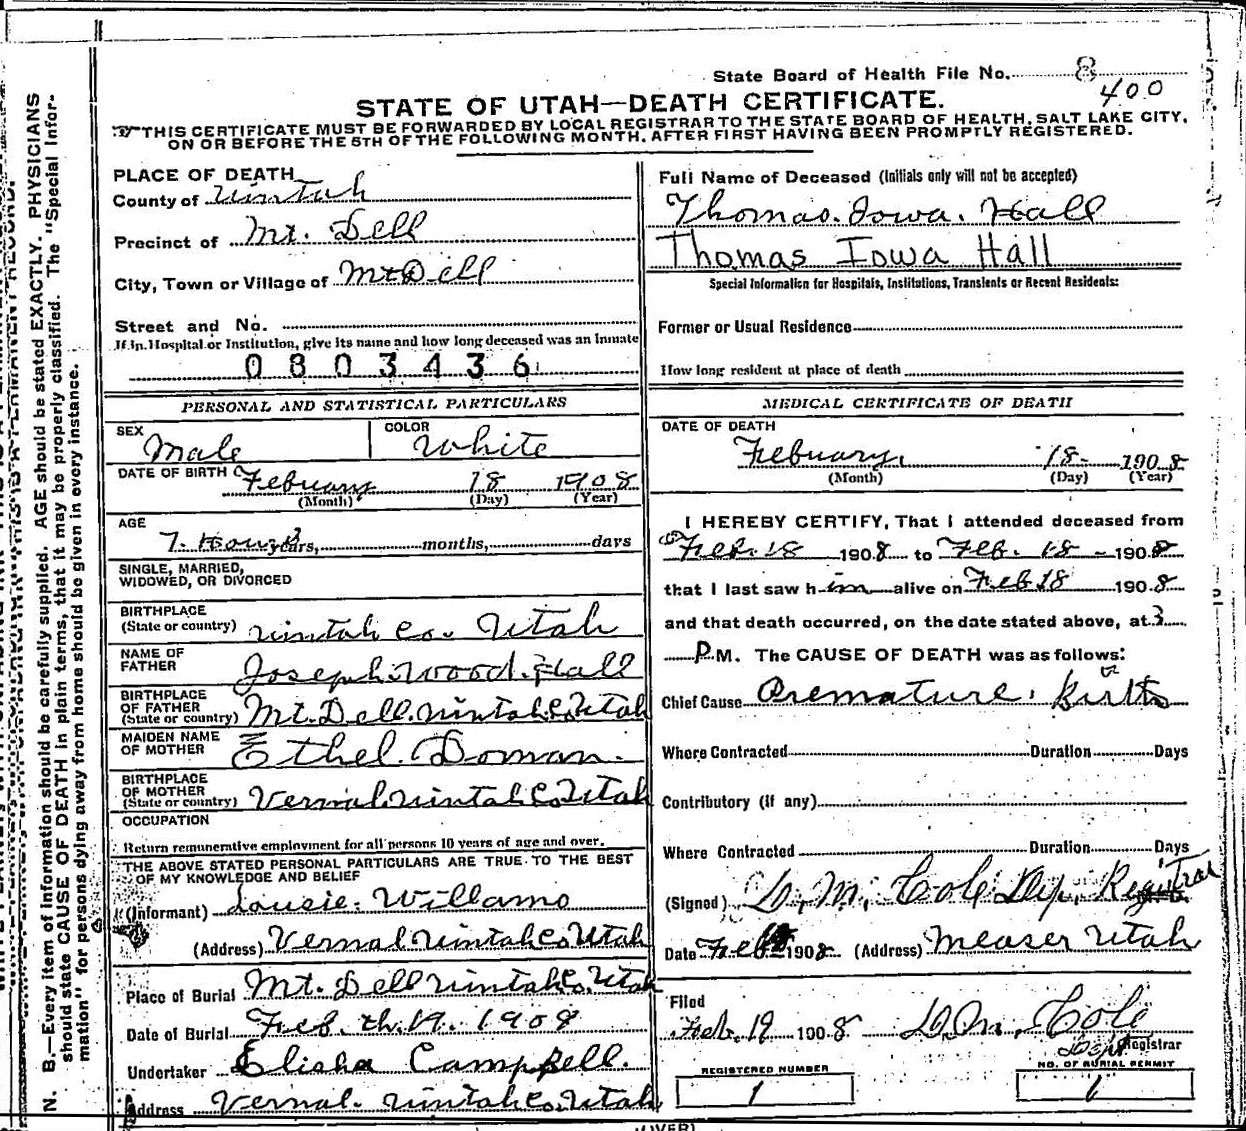 State Board of Health File No. 8
400
STATE OF UTAH—DEATH CERTIFICATE.
THIS CERTIFICATE MUST BE FORWARDED BY LOCAL REGISTRAR TO THE STATE BOARD OF HEALTH, SALT LAKE CITY,
ON OR BEFORE THE 5TH OF THE FOLLOWING MONTH, AFTER FIRST HAVING BEEN PROMPTLY REGISTERED.
PLACE OF DEATH
County of Uintah
Precinct of Mt. Dell
City, Town or Village of Mt Dell
Street and No.
If in Hospital or Institution, give its name and how long deceased was an Inmate
0803436
PERSONAL AND STATISTICAL PARTICULARS
SEX Male COLOR White
DATE OF BIRTH Febuary 18 1908
(Month) (Day) (Year)
AGE
7. Hours years, months, days
SINGLE, MARRIED,
WIDOWED, OR DIVORCED
BIRTHPLACE
(State or country) uintah Co. Utah
NAME OF
FATHER Joseph Wood Hall
BIRTHPLACE
OF FATHER
(State or country) Mt. Dell. uintah Co Utah
MAIDEN NAME
OF MOTHER Ethel. Doman.
BIRTHPLACE
OF MOTHER
(State or country) Vernal uintah Co Utah
OCCUPATION
Return remunerative employment for all persons 10 years of age and over.
THE ABOVE STATED PERSONAL PARTICULARS ARE TRUE TO THE BEST
OF MY KNOWLEDGE AND BELIEF
(Informant) Lousie. Willams
(Address) Vernal uintah Co Utah
Place of Burial Mt. Dell uintah Co. Utah
Date of Burial Feb. th. 19. 1908
Undertaker Elisha Campbell.
Address Vernal. uintah Co. Utah
Full Name of Deceased (Initials only will not be accepted)
Thomas. Iowa. Hall
Thomas Iowa Hall
Special Information for Hospitals, Institutions, Transients or Recent Residents:
Former or Usual Residence
How long resident at place of death
MEDICAL CERTIFICATE OF DEATH
DATE OF DEATH
Febuary. 18. 1908
(Month) (Day) (Year)
I HEREBY CERTIFY, That I attended deceased from
Feb. 18 1908 to Feb. 18 1908
that I last saw him alive on Feb 18 1908
and that death occurred, on the date stated above, at 3
P M. The CAUSE OF DEATH was as follows:
Chief Cause Premature. Birth
Where Contracted Duration Days
Contributory (if any)
Where Contracted Duration Days
(Signed) D. M. Cole Dep. Registrar
Date Feb 1908 (Address) Measer Utah
Filed
Feb. 19 1908 D. M. Cole
Dept Registrar
REGISTERED NUMBER
1
NO. OF BURIAL PERMIT
1
(OVER)
N. B.—Every item of information should be carefully supplied. AGE should be stated EXACTLY. PHYSICIANS
should state CAUSE OF DEATH in plain terms, that it may be properly classified. The "Special Infor-
mation" for persons dying away from home should be given in every instance.